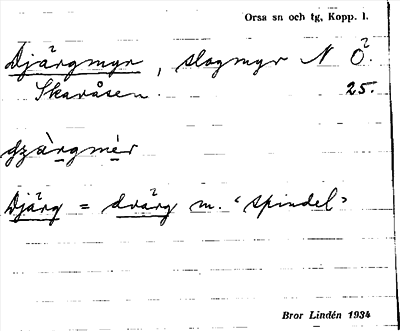 Orsa sn och tg, Kopp. l.
Djärgmyr, slogmyr N Ö.
Skaråsen. 25.
gzàrgmèr
Djärg = dvärg m. "spindel"
Bror Lindén 1934